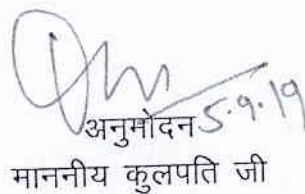 अनुमोदन 5.9.19
माननीय कुलपति जी